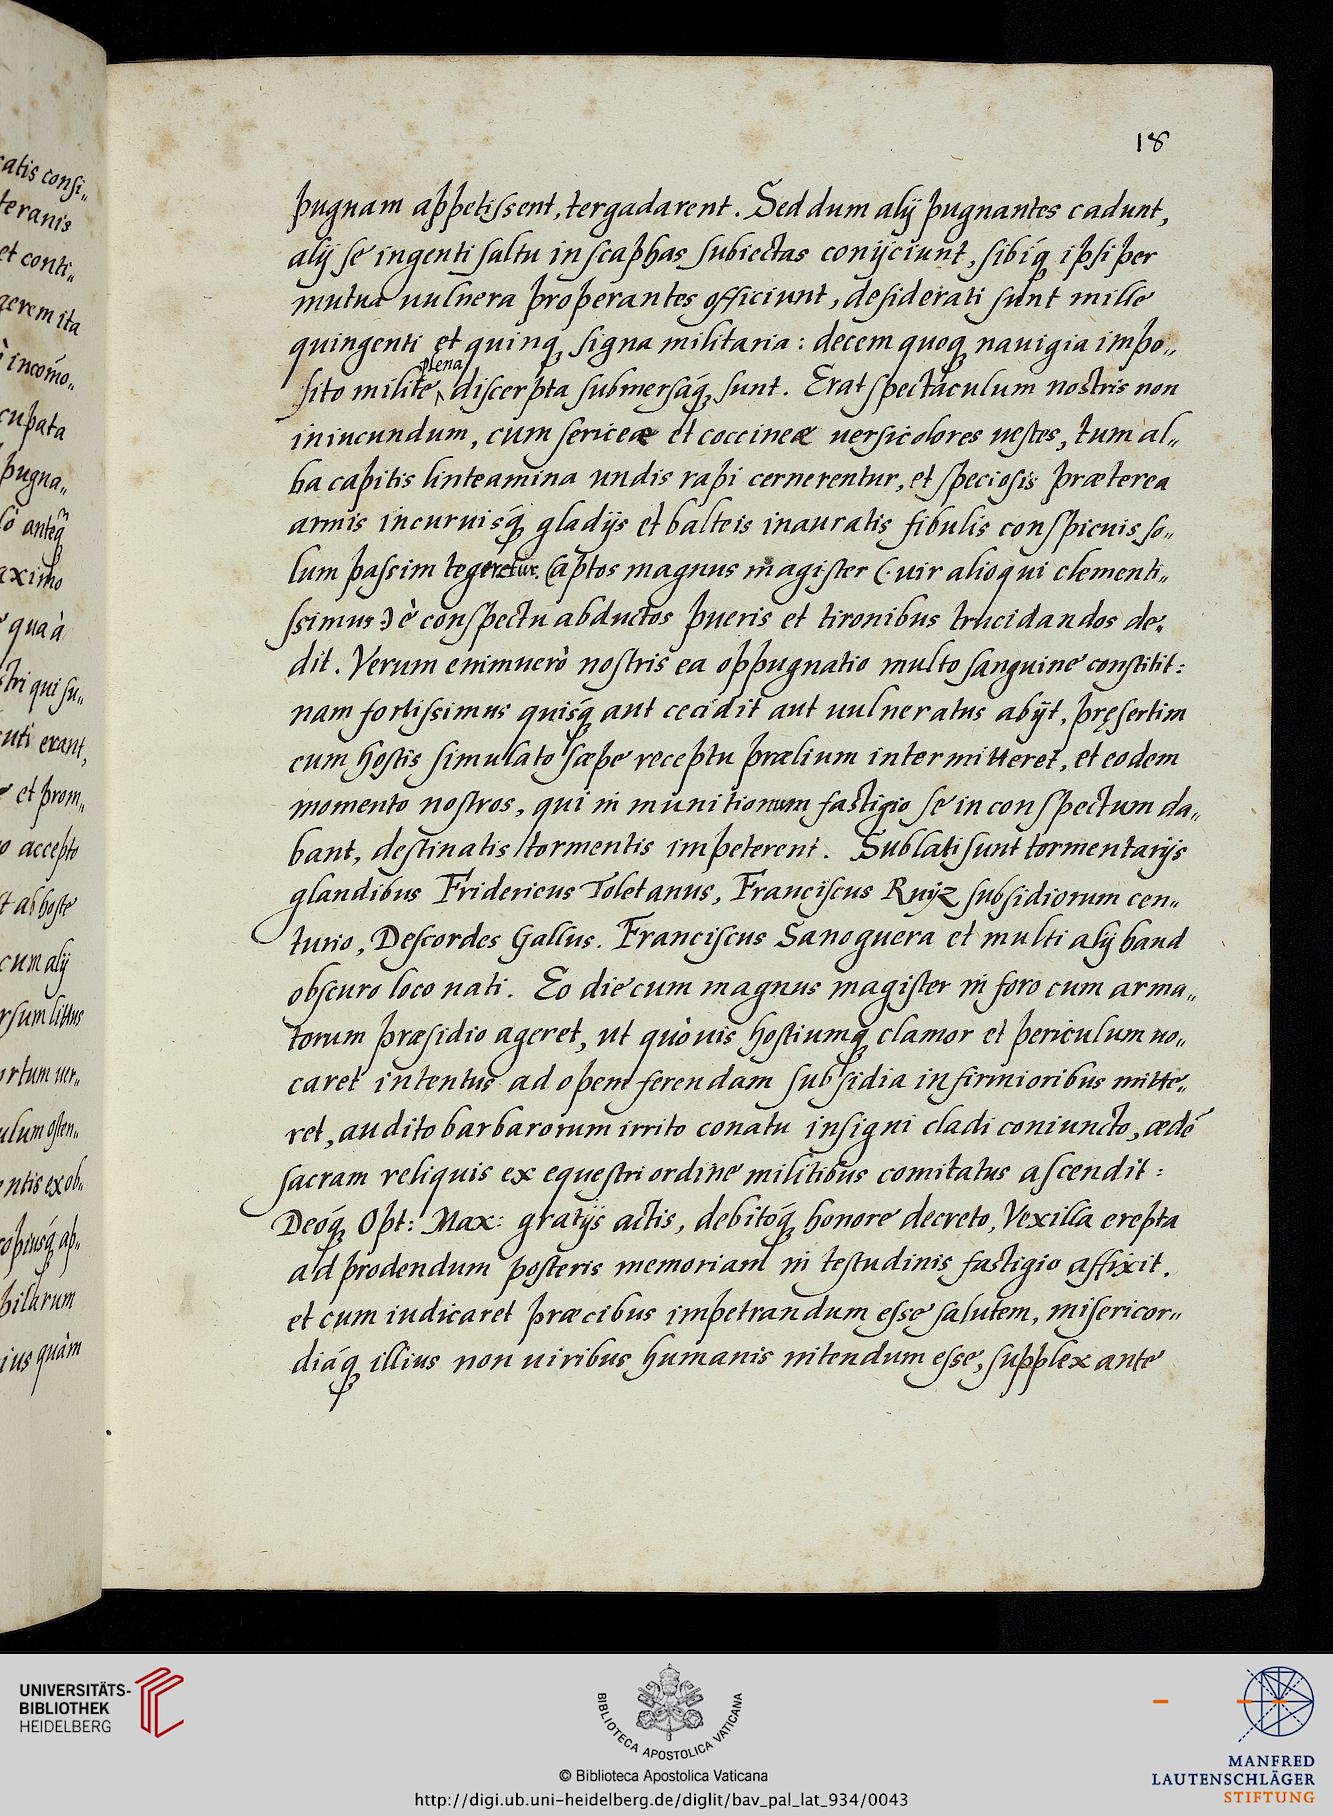 atis consi„
teranis
et conti„
gerem ita
incōmo„
cupata
pugna„
lò anteq̃
aximo
qua à
stri qui su„
cuti erant,
et prom„
o accepto
t ab hoste
cum alij
rsum littus
ortum uer„
ulum osten„
entis ex ob„
ropiusq́ ap„
bilarum
ius quàm
18
pugnam appetissent, terga darent. Sed dum alij pugnantes cadunt,
alij se ingenti saltu in scaphas subiectas conijciunt, sibiq́ ipsi per
mutua uulnera properantes officiunt, desiderati sunt mille
quingenti et quinq signa militaria: decem quoq nauigia impo„
plena
sito milite, discerpta submersaq́ sunt. Erat spectaculum nostris non
iniucundum, cum sericeæ et coccineæ uersicolores uestes, tum al„
ba capitis linteamina undis rapi cernerentur, et speciosis præterea
armis incuruisq́ gladijs et balteis inauratis fibulis conspicuis so„
lum passim tegeretur. Captos magnus magister (: uir alioqui clementi„
ssimus :) è conspectu abductos pueris et tironibus trucidandos de„
dit. Verum enimuerò nostris ea oppugnatio multo sanguine constitit:
nam fortissimus quisq́ aut cecidit aut uulneratus abijt, pręsertim
cum hostis simulato sæpe receptu prælium intermitteret, et eodem
momento nostros, qui in munitionum fastigio se in conspectum da„
bant, destinatis tormentis impeterent. Sublati sunt tormentarijs
glandibus Fridericus Toletanus, Franciscus Ruyz subsidiorum cen„
turio, Descordes Gallus. Franciscus Sanoguera et multi alij haud
obscuro loco nati. Eo die cum magnus magister in foro cum arma„
torum præsidio ageret, ut quòuis hostiumq clamor et periculum uo„
caret intentus ad opem ferendam subsidia infirmioribus mitte„
ret, audito barbarorum irrito conatu insigni cladi coniuncto, ædē
sacram reliquis ex equestri ordine militibus comitatus ascendit:
Deoq́ Opt: Max: gratijs actis, debitoq́ honore decreto, Vexilla erepta
ad prodendum posteris memoriam in testudinis fastigio affixit.
et cum iudicaret præcibus impetrandum esse salutem, misericor„
diaq́ illius non uiribus humanis nitendum esse, supplex ante
UNIVERSITÄTS-
BIBLIOTHEK
HEIDELBERG
BIBLIOTECA APOSTOLICA VATICANA
© Biblioteca Apostolica Vaticana
http://digi.ub.uni-heidelberg.de/diglit/bav_pal_lat_934/0043
MANFRED
LAUTENSCHLÄGER
STIFTUNG